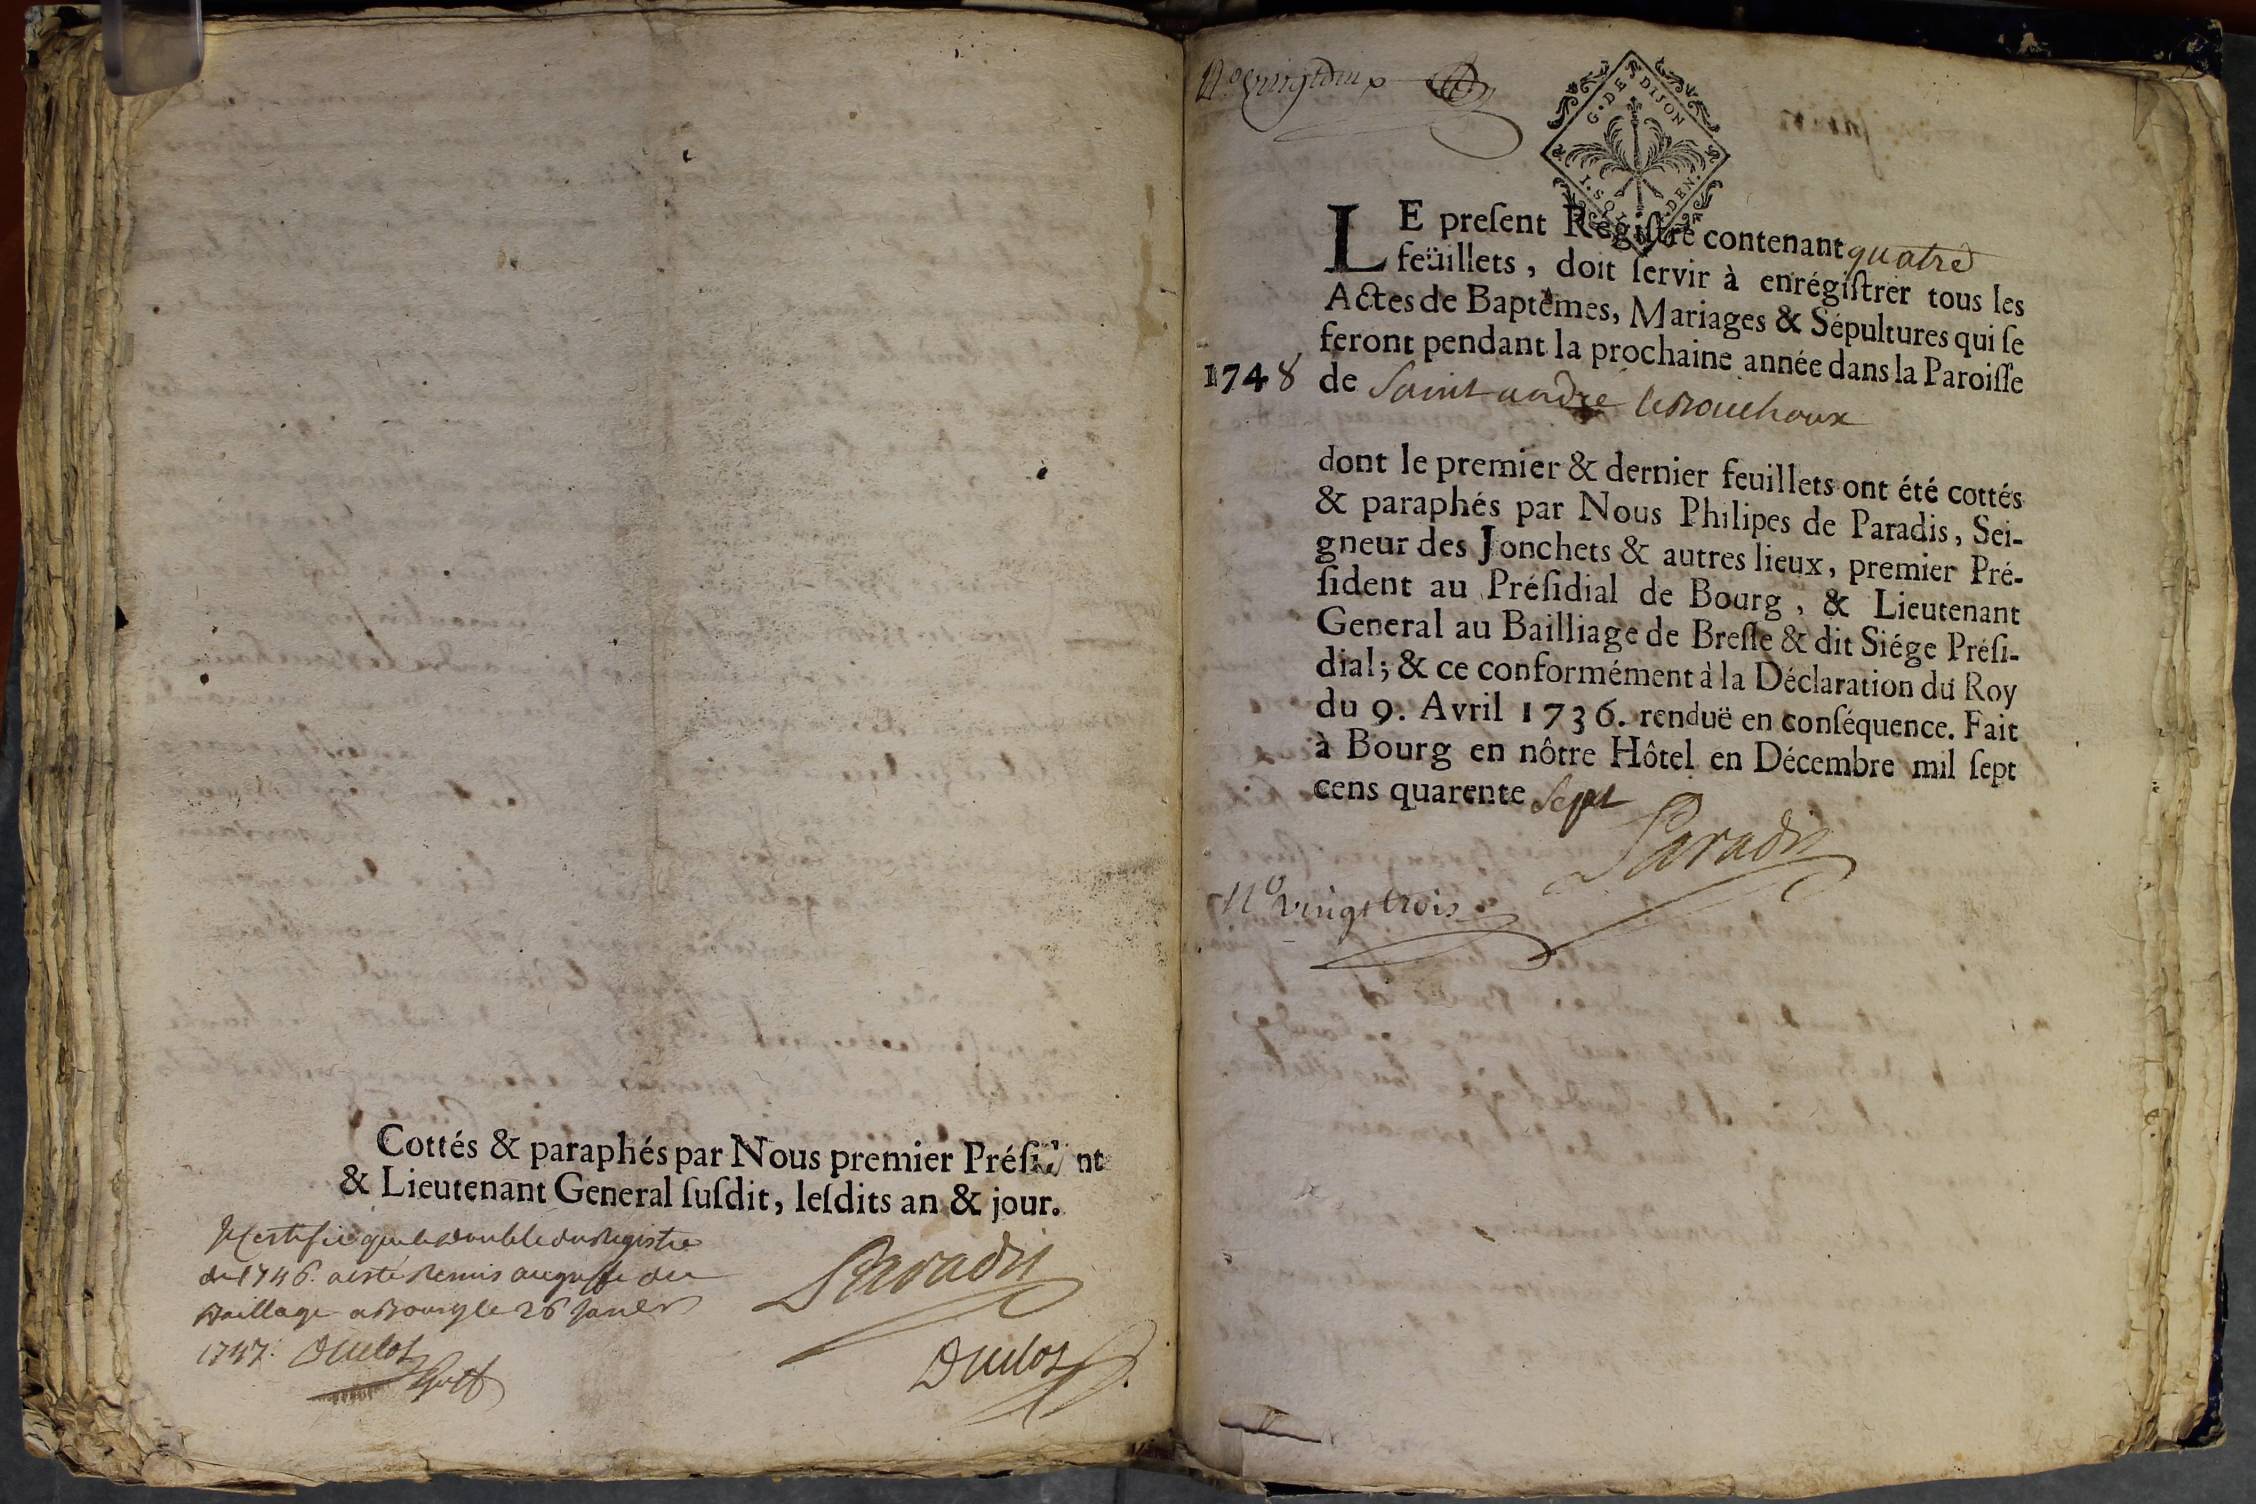 Cottés & paraphés par Nous premier Présid nt
& Lieutenant General ſuſdit, leſdits an & jour.
Je certifie que le double du Registre
de 1746. a esté remis au greffe du
Baillage a Bourg le 26 Janvier
1747. Duclos
Paradis
Duclos
No vingtdeux
G. DE DIJON
I. SOL DEN.
LE preſent Regiſtre contenant quatre
feüillets, doit ſervir à enrégiſtrer tous les
Actes de Baptêmes, Mariages & Sépultures qui ſe
feront pendant la prochaine année dans la Paroiſſe
1748 de Saint andré le Bouchoux
dont le premier & dernier feuillets ont été cottés
& paraphés par Nous Philipes de Paradis, Sei-
gneur des Jonchets & autres lieux, premier Pré-
ſident au Préſidial de Bourg, & Lieutenant
General au Bailliage de Breſſe & dit Siége Préſi-
dial; & ce conformément à la Déclaration du Roy
du 9. Avril 1736. renduë en conſéquence. Fait
à Bourg en nôtre Hôtel en Décembre mil ſept
cens quarente Sept
Paradis
No vingttrois